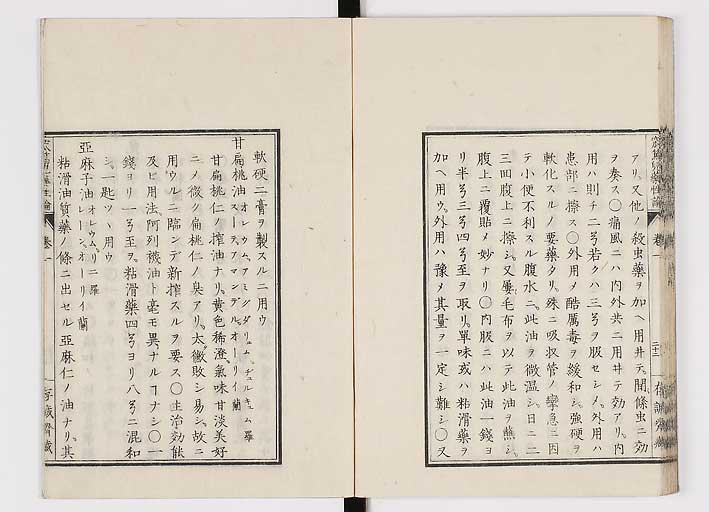 アリ、又他ノ殺虫藥ヲ加ヘ用井テ、間條虫ニ効
ヲ奏ス〇痛風ニハ内外共ニ用井テ効アリ、内
用ハ則チ二弓若クハ三弓ヲ服セシメ、外用ハ
患部ニ擦ス〇外用メ酷厲毒ヲ緩和シ、強硬ヲ
軟化スルノ要藥タリ、殊ニ吸收管ノ攣急ニ因
テ小便不利スル腹水ニ、此油ヲ微温シ、日ニ二
三回腹上ニ擦シ、又屢毛布ヲ以テ此油ヲ蘸シ、
腹上ニ覆貼メ妙ナリ〇内服ニハ此油一錢ヨ
リ半弓三弓四弓至ヲ取リ、單味或ハ粘滑藥ヲ
加ヘ用ウ、外用ハ豫メ其量ヲ一定シ難シ〇又
軟硬二膏ヲ製スルニ用ウ
甘扁桃油 オレウム、アミグダリュム、ヂュルキュム 羅
スーテ、アマンデル、オーリイ 蘭
甘扁桃仁ノ搾油ナリ、黄色稀澄、氣味甘淡美好
ニメ微ク扁桃仁ノ臭アリ、太黴敗シ易シ、故ニ
用ウルニ臨ンデ新搾スルヲ要ス〇主治効能
及ヒ用法、阿列襪油ト毫モ異ナルヿナシ〇一
錢ヨリ一弓至ヲ、粘滑藥四弓ヨリ八弓ニ混和
シ、一匙ヅヽ用ウ
亞麻子油 オレウム、リニ 羅
レーン、オーリイ 蘭
粘滑油質藥ノ條ニ出セル亞麻仁ノ油ナリ、其